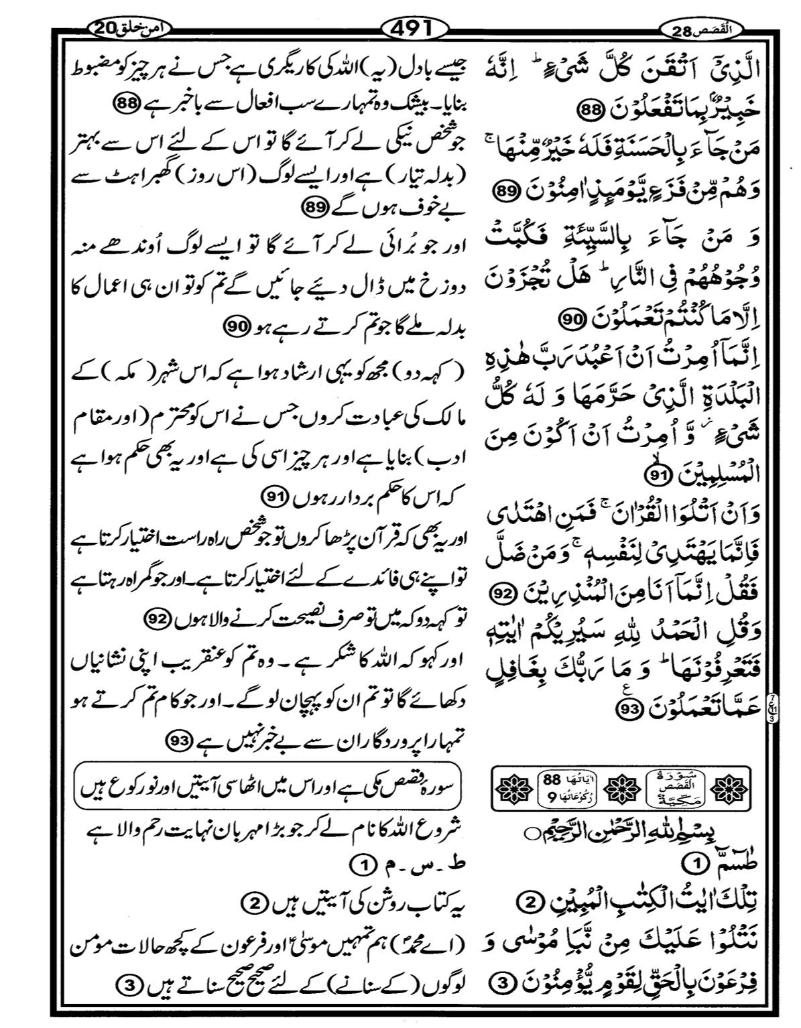 القصص 28
491
امن خلق 20
الَّذِیْۤ اَتْقَنَ كُلَّ شَیْءٍ ؕ اِنَّهٗ
خَبِیْرٌۢ بِمَا تَفْعَلُوْنَ 88
مَنْ جَآءَ بِالْحَسَنَةِ فَلَهٗ خَیْرٌ مِّنْهَا ۚ
وَهُمْ مِّنْ فَزَعٍ یَّوْمَىِٕذٍ اٰمِنُوْنَ 89
وَ مَنْ جَآءَ بِالسَّیِّئَةِ فَكُبَّتْ
وُجُوْهُهُمْ فِی النَّارِ ؕ هَلْ تُجْزَوْنَ
اِلَّا مَا كُنْتُمْ تَعْمَلُوْنَ 90
اِنَّمَاۤ اُمِرْتُ اَنْ اَعْبُدَ رَبَّ هٰذِهِ
الْبَلْدَةِ الَّذِیْ حَرَّمَهَا وَ لَهٗ كُلُّ
شَیْءٍ ؗ وَّ اُمِرْتُ اَنْ اَكُوْنَ مِنَ
الْمُسْلِمِیْنَ 91
وَاَنْ اَتْلُوَا الْقُرْاٰنَ ۚ فَمَنِ اهْتَدٰی
فَاِنَّمَا یَهْتَدِیْ لِنَفْسِهٖ ۚ وَمَنْ ضَلَّ
فَقُلْ اِنَّمَاۤ اَنَا مِنَ الْمُنْذِرِیْنَ 92
وَقُلِ الْحَمْدُ لِلّٰهِ سَیُرِیْكُمْ اٰیٰتِهٖ
فَتَعْرِفُوْنَهَا ؕ وَ مَا رَبُّكَ بِغَافِلٍ
عَمَّا تَعْمَلُوْنَ 93
سُوْرَةُ
الْقَصَصِ
مَكِّیَّةٌ
اٰیَاتُهَا 88
رُكُوْعَاتُهَا 9
بِسْمِ اللّٰهِ الرَّحْمٰنِ الرَّحِیْمِ
طٰسٓمّٓ 1
تِلْكَ اٰیٰتُ الْكِتٰبِ الْمُبِیْنِ 2
نَتْلُوْا عَلَیْكَ مِنْ نَّبَاِ مُوْسٰی وَ
فِرْعَوْنَ بِالْحَقِّ لِقَوْمٍ یُّؤْمِنُوْنَ 3
جیسے بادل (یہ) اللہ کی کاریگری ہے جس نے ہر چیز کو مضبوط
بنایا۔ بیشک وہ تمہارے سب افعال سے باخبر ہے 88
جو شخص نیکی لے کر آئے گا تو اس کے لئے اس سے بہتر
(بدلہ تیار) ہے اور ایسے لوگ (اس روز) گھبراہٹ سے
بے خوف ہوں گے 89
اور جو بُرائی لے کر آئے گا تو ایسے لوگ اُوندھے منہ
دوزخ میں ڈال دیئے جائیں گے تم کو تو ان ہی اعمال کا
بدلہ ملے گا جو تم کرتے رہے ہو 90
(کہہ دو) مجھ کو یہی ارشاد ہوا ہے کہ اس شہر (مکہ) کے
مالک کی عبادت کروں جس نے اس کو محترم (اور مقام
ادب) بنایا ہے اور ہر چیز اسی کی ہے اور یہ بھی حکم ہوا ہے
کہ اس کا حکم بردار رہوں 91
اور یہ بھی کہ قرآن پڑھا کروں تو جو شخص راہ راست اختیار کرتا ہے
تو اپنے ہی فائدے کے لئے اختیار کرتا ہے۔ اور جو گمراہ رہتا ہے
تو کہہ دو کہ میں تو صرف نصیحت کرنے والا ہوں 92
اور کہو کہ اللہ کا شکر ہے ۔ وہ تم کو عنقریب اپنی نشانیاں
دکھائے گا تو تم ان کو پہچان لو گے۔ اور جو کام تم کرتے ہو
تمہارا پروردگار ان سے بے خبر نہیں ہے 93
سورہ قصص مکی ہے اور اس میں اٹھاسی آیتیں اور نو رکوع ہیں
شروع اللہ کا نام لے کر جو بڑا مہربان نہایت رحم والا ہے
ط ۔ س ۔ م 1
یہ کتاب روشن کی آیتیں ہیں 2
(اے محمدؐ) ہم تمہیں موسٰیؑ اور فرعون کے کچھ حالات مومن
لوگوں (کے سنانے) کے لئے صحیح صحیح سناتے ہیں 3